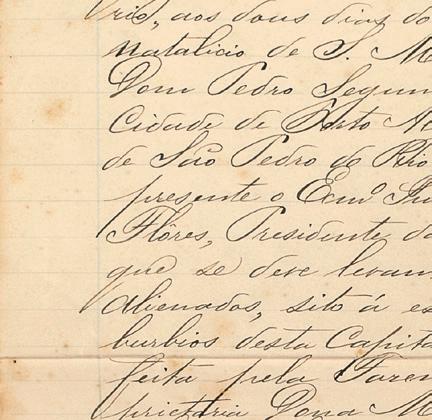 rio, aos dous dias do
natalicio de S. M
Dom Pedro Segun
Cidade de Porto A
de São Pedro do Rio
presente o Ecmº Sn
Flôres, Presidente da
que se deve levan
Alienados, sito á es
burbios desta Capita
feita pela Faren
prietaria Dona M